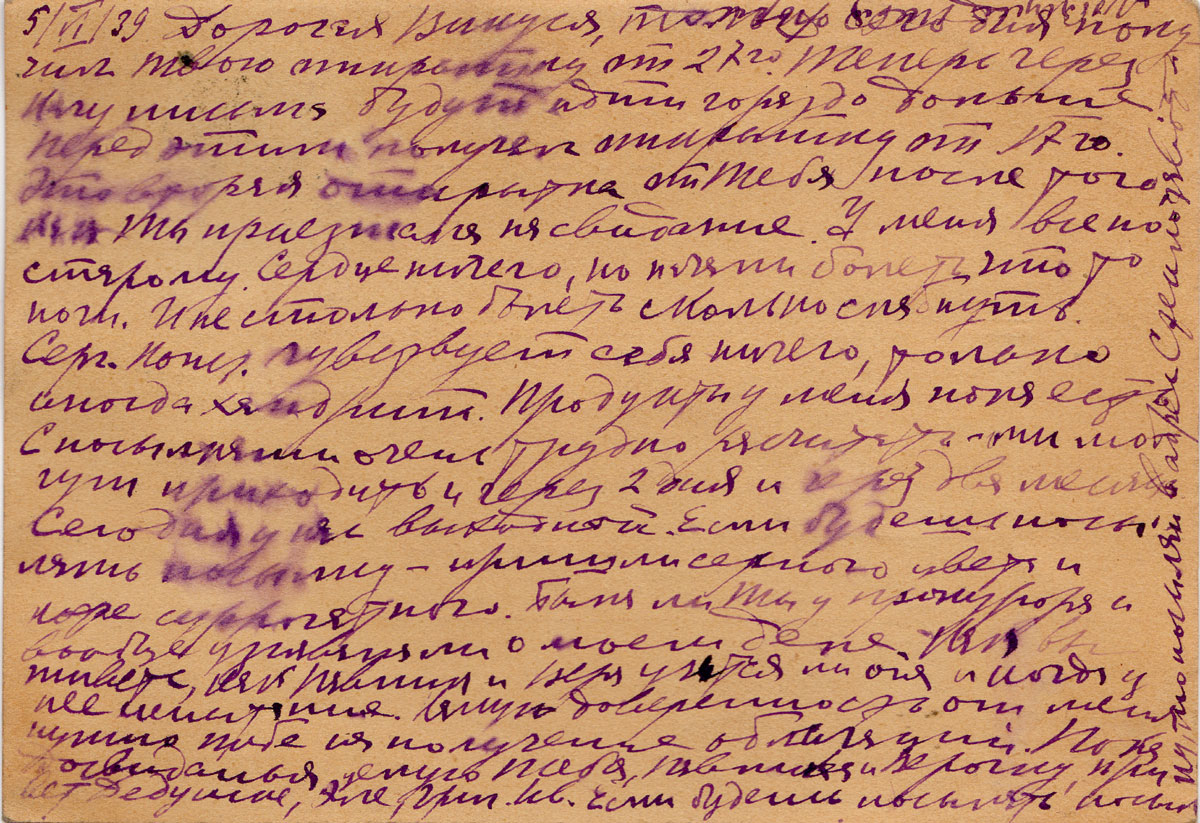 5/VI/39 Дорогая Винуся, только сегодня полу
чил твою открытку от 27го. Теперь через
письма будут идти гораздо дольше
перед этим получил открытку от 17го.
Это вторая открытка от тебя после того
как ты приезжала на свидание. У меня все по
старому. Сердце ничего, но начали болеть что то
ноги. И не столько болеть сколько
Серг. чувствует себя ничего, только
иногда хандрит. Продукты у меня пока есть
С посылками очень трудно рассчитать - они мо
гут приходить и через 2 дня и через два месяца
Сегодня у нас выходной. Если будешь посы
лять посылку - пришли серного цвета и
кофе суррогатного. Была ли ты у прокурора и
вообще узнавали о моем деле. Как вы
живете, как и Вера учится ли она и когда у
нее испытания. Какую доверенность от меня
нужно тебе на получение облигаций. Пока
досвиданья, целую тебя, и Верочку, при
вет Дедушке, Эле, Григ. Ив. Если будешь посылать посыл
то посылай в адрес